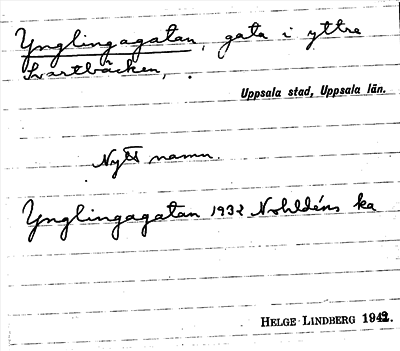 Ynglingagatan, gata i yttre
Svartbäcken,
Uppsala stad, Uppsala län.
Nytt namn.
Ynglingagatan 1932 Nohldéns ka
HELGE LINDBERG 1942.